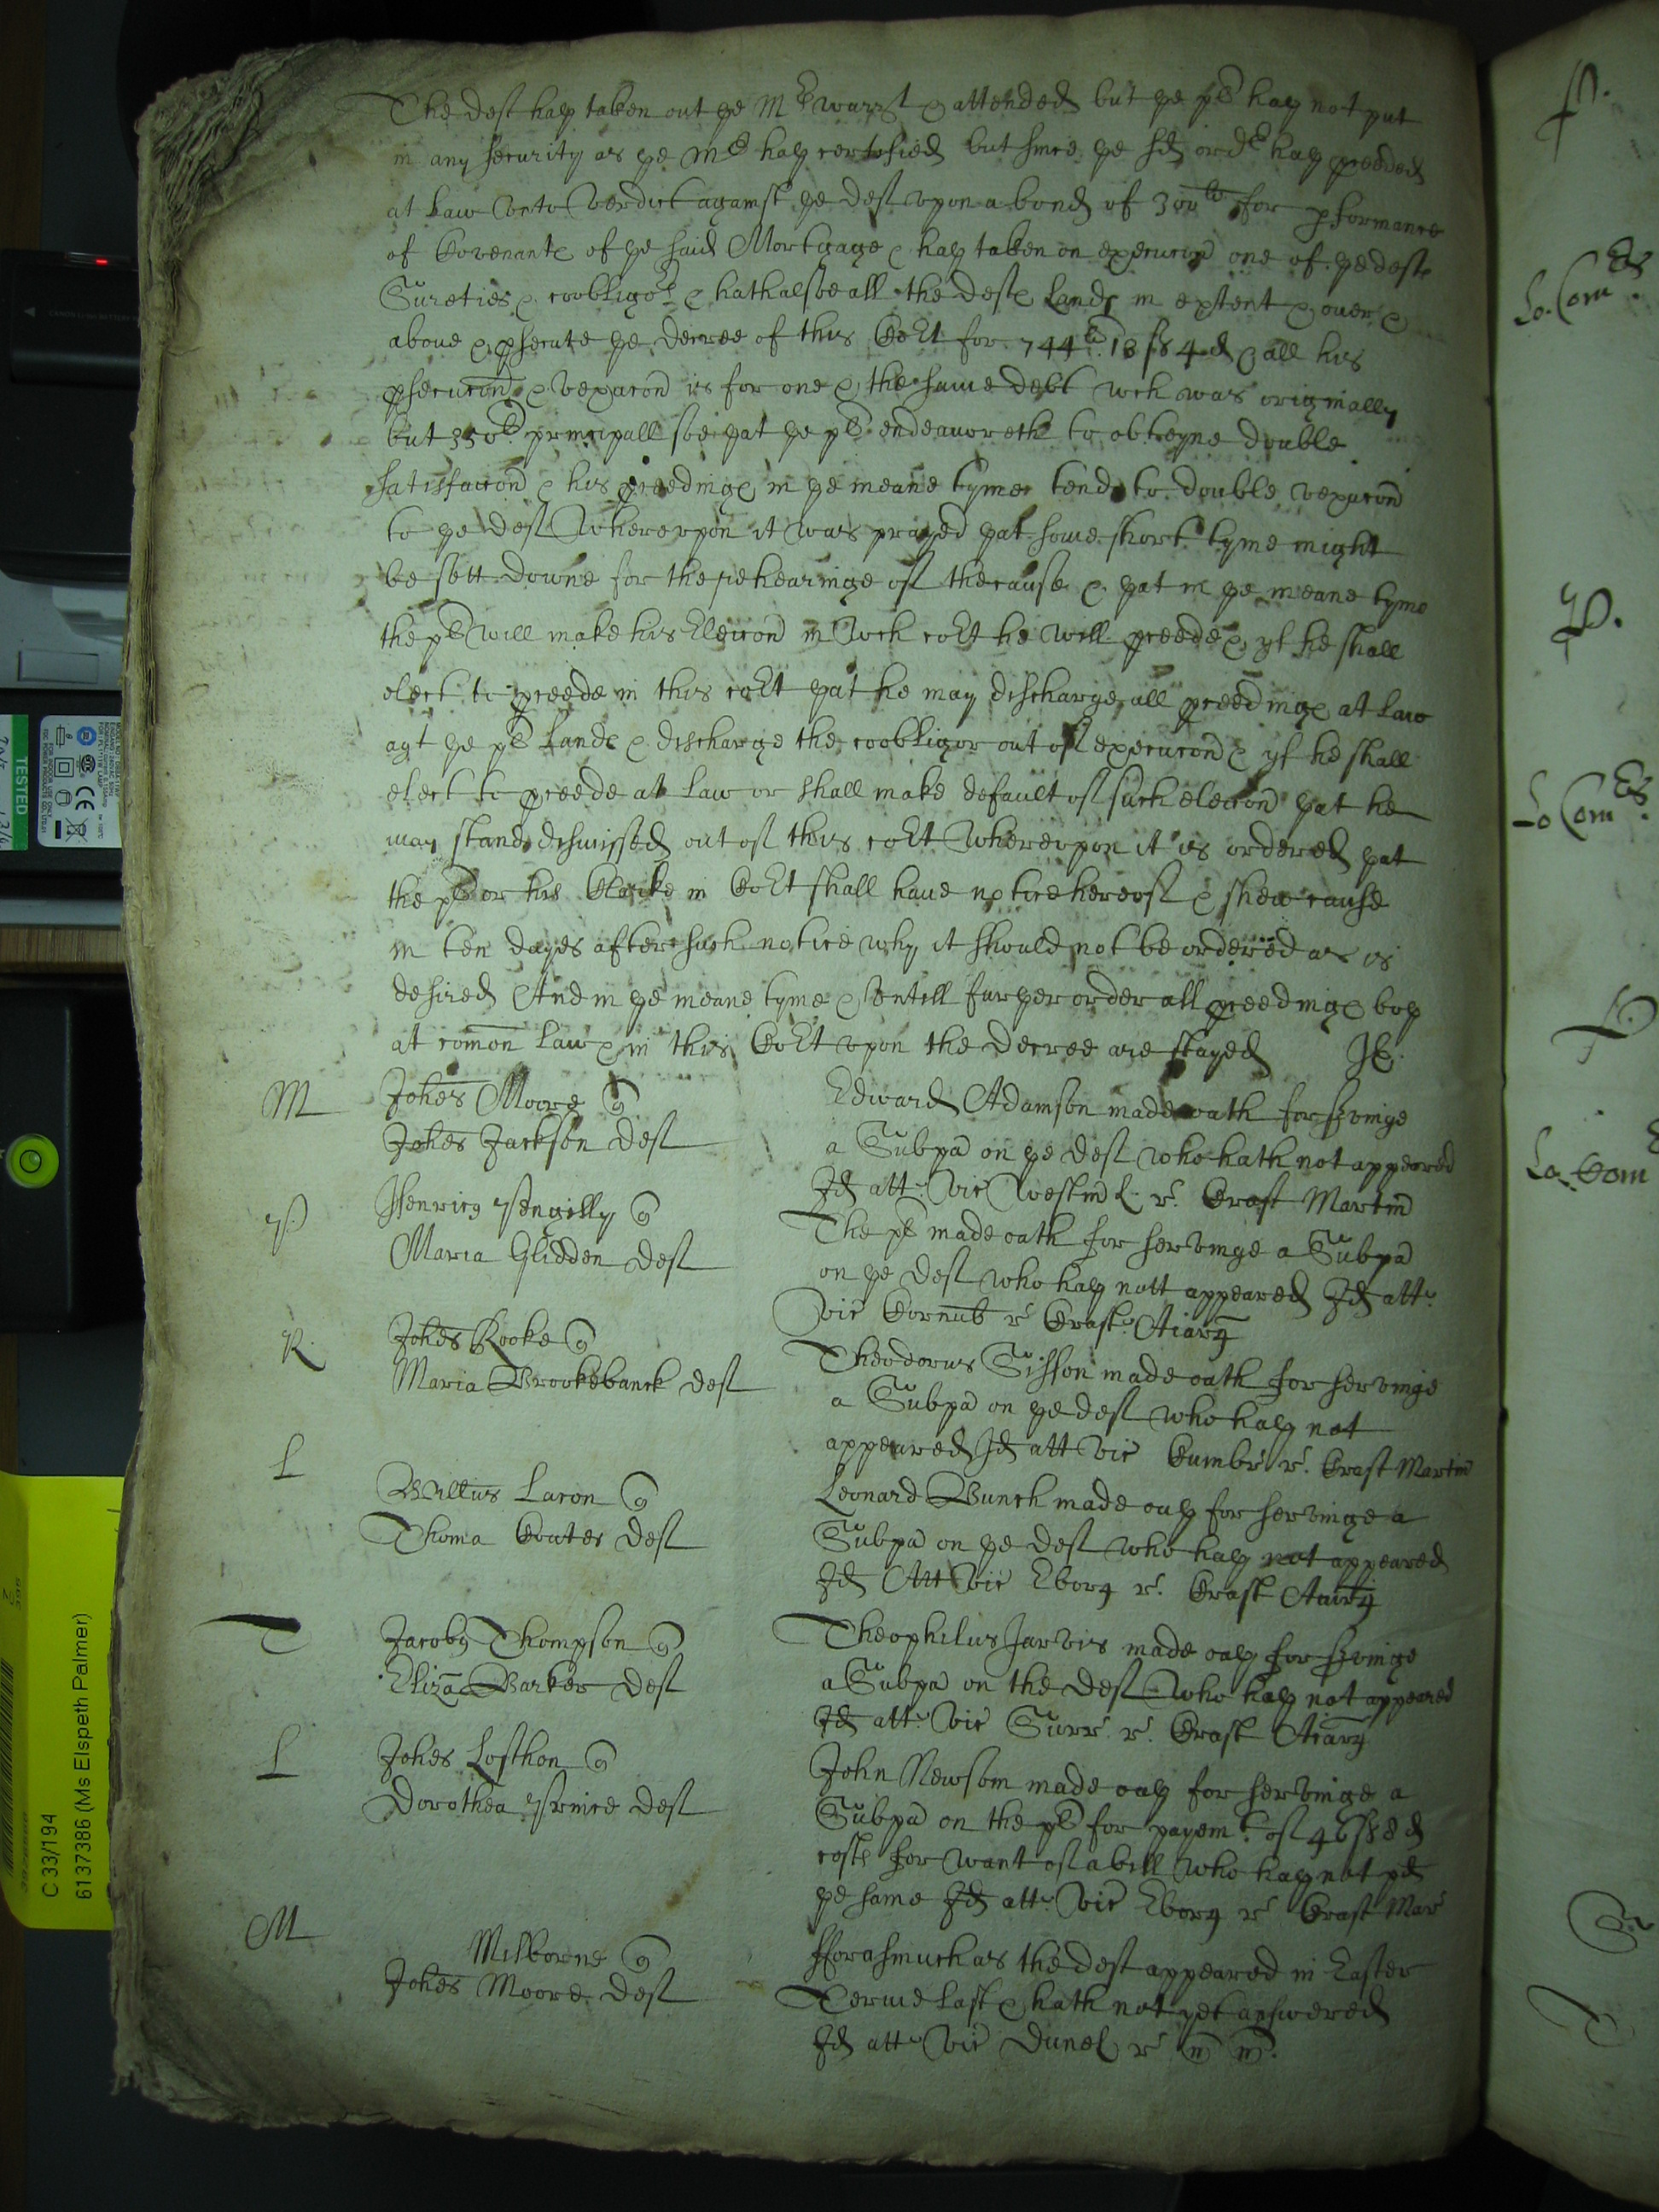 The deft hath taken out the Mrs warrt & attended but the plt hath not put
in any security as the Mr hath certified but since the sd ordr hath pceeded
at Law unto verdict against the deft upon a bond of 300li for pformance
of Covenante of the said Mortgage & hath taken on execucon one of the defte
Sureties & coobligor & hath alsoe all the defte Lands in extent & over &
above & psecute the decree of this Cort for 744li 13s 4d & all his
psecucon & vexacon is for one & the same debt wch was originally
but 350li principall soe that the plt endeavoreth to obteyne double
satisfaccon & his pceedinge in the meane tyme tends to double vexacon
to the deft Whereupon it was prayed that some short tyme might
be sett downe for the rehearinge of the cause & that in the meane tyme
the plt will make his Eleccon in wch cort he will pceede & yf he shall
elect to pceede in this cort that he may discharge all pceedinge at Law
agt the plt Lande & discharge the coobligor out of execucon & yf he shall
elect to pceede at Law or shall make default of such eleccon that he
may stand dismissed out of this cort Whereupon it is ordered that
the plt or his Clarke in Cort shall have notice hereof & shew cause
in ten dayes after such notice why it should not be ordered as is
desired And in the meane tyme & untill further order all pceedinge both
at comon Law & in this Cort upon the decree are stayed
M
Johes Moore q
Johes Jackson deft
Edward Adamson made oath for srvinge
a Subpa on the deft who hath not appeared
Id att vic Westmd r Crast Martin
P
Henricus Pengilly q
Maria Glidden deft
The plt made oath for servinge a Subpa
on the deft who hath nott appeared Id att
vic Cornub r Crast Aiarum
R
Johes Rooke q
Maria Brookebanck deft
Theodorus Sisson made oath for servinge
a Subpa on the deft who hath not
appeared Id att vic Cumbr r Crast Martin
L
Willus Lacon q
Thoma Coates deft
Leonard Bunch made oath for servinge a
Subpa on the deft who hath not appeared
Id Att vic Eborum r Crast Aiarum
T
Jacobus Thompson q
Eliza Barker deft
Theophilus Jarvis made oath for srvinge
a Subpa on the deft who hath not appeared
Id att vic Surr r Crast Aiarum
L
Johes Losthon q
Dorothea Prince deft
John Newsom made oath for servinge a
Subpa on the plt for payemt of 46s 8d
costs for want of a bill who hath not pd
the same Id att vic Eborum r Crast Mar
M
Milborne q
Johes Moore deft
fforasmuch as the deft appeared in Easter
Terme last & hath not yet answered
Id att vic Dunel r
P.
Lo. Com
P.
Lo Com
Lo. Com
TESTED
C 33/194
6137386 (Ms Elspeth Palmer)